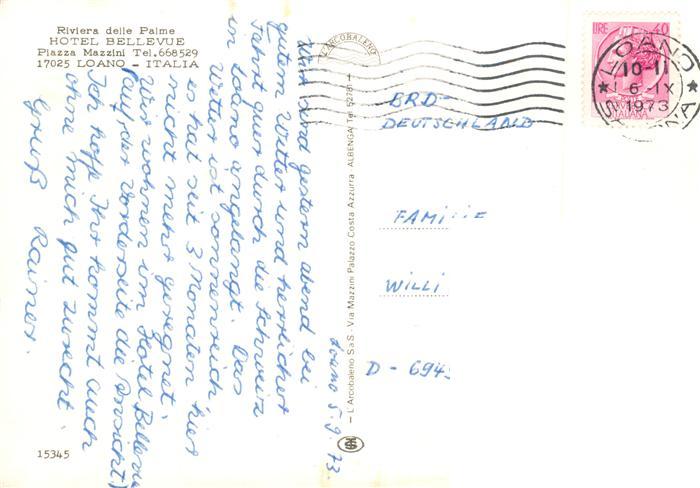 Riviera delle Palme
HOTEL BELLEVUE
Piazza Mazzini Tel. 668529
17025 LOANO - ITALIA
Loano 5.9.73.
Wir sind gestern abend bei
gutem Wetter und herrlicher
Fahrt quer durch die Schweiz
in Loano angelangt. Das
Wetter ist sonnenreich
es hat seit 3 Monaten hier
nicht mehr geregnet.
Wir wohnen im Hotel Bellevue
(auf der Vorderseite die
Ich hoffe Ihr kommt auch
ohne mich gut zurecht.
Gruß Rainer.
15345
L'ARCOBALENO
— L'Arcobaleno S.a.S. - Via Mazzini Palazzo Costa Azzurra - ALBENGA - Tel. 52781 —
LIRE 40
ITALIANA
LOANO
10-11
6-IX
1973
BRD-
DEUTSCHLAND
FAMILIE
WILLI
D - 694